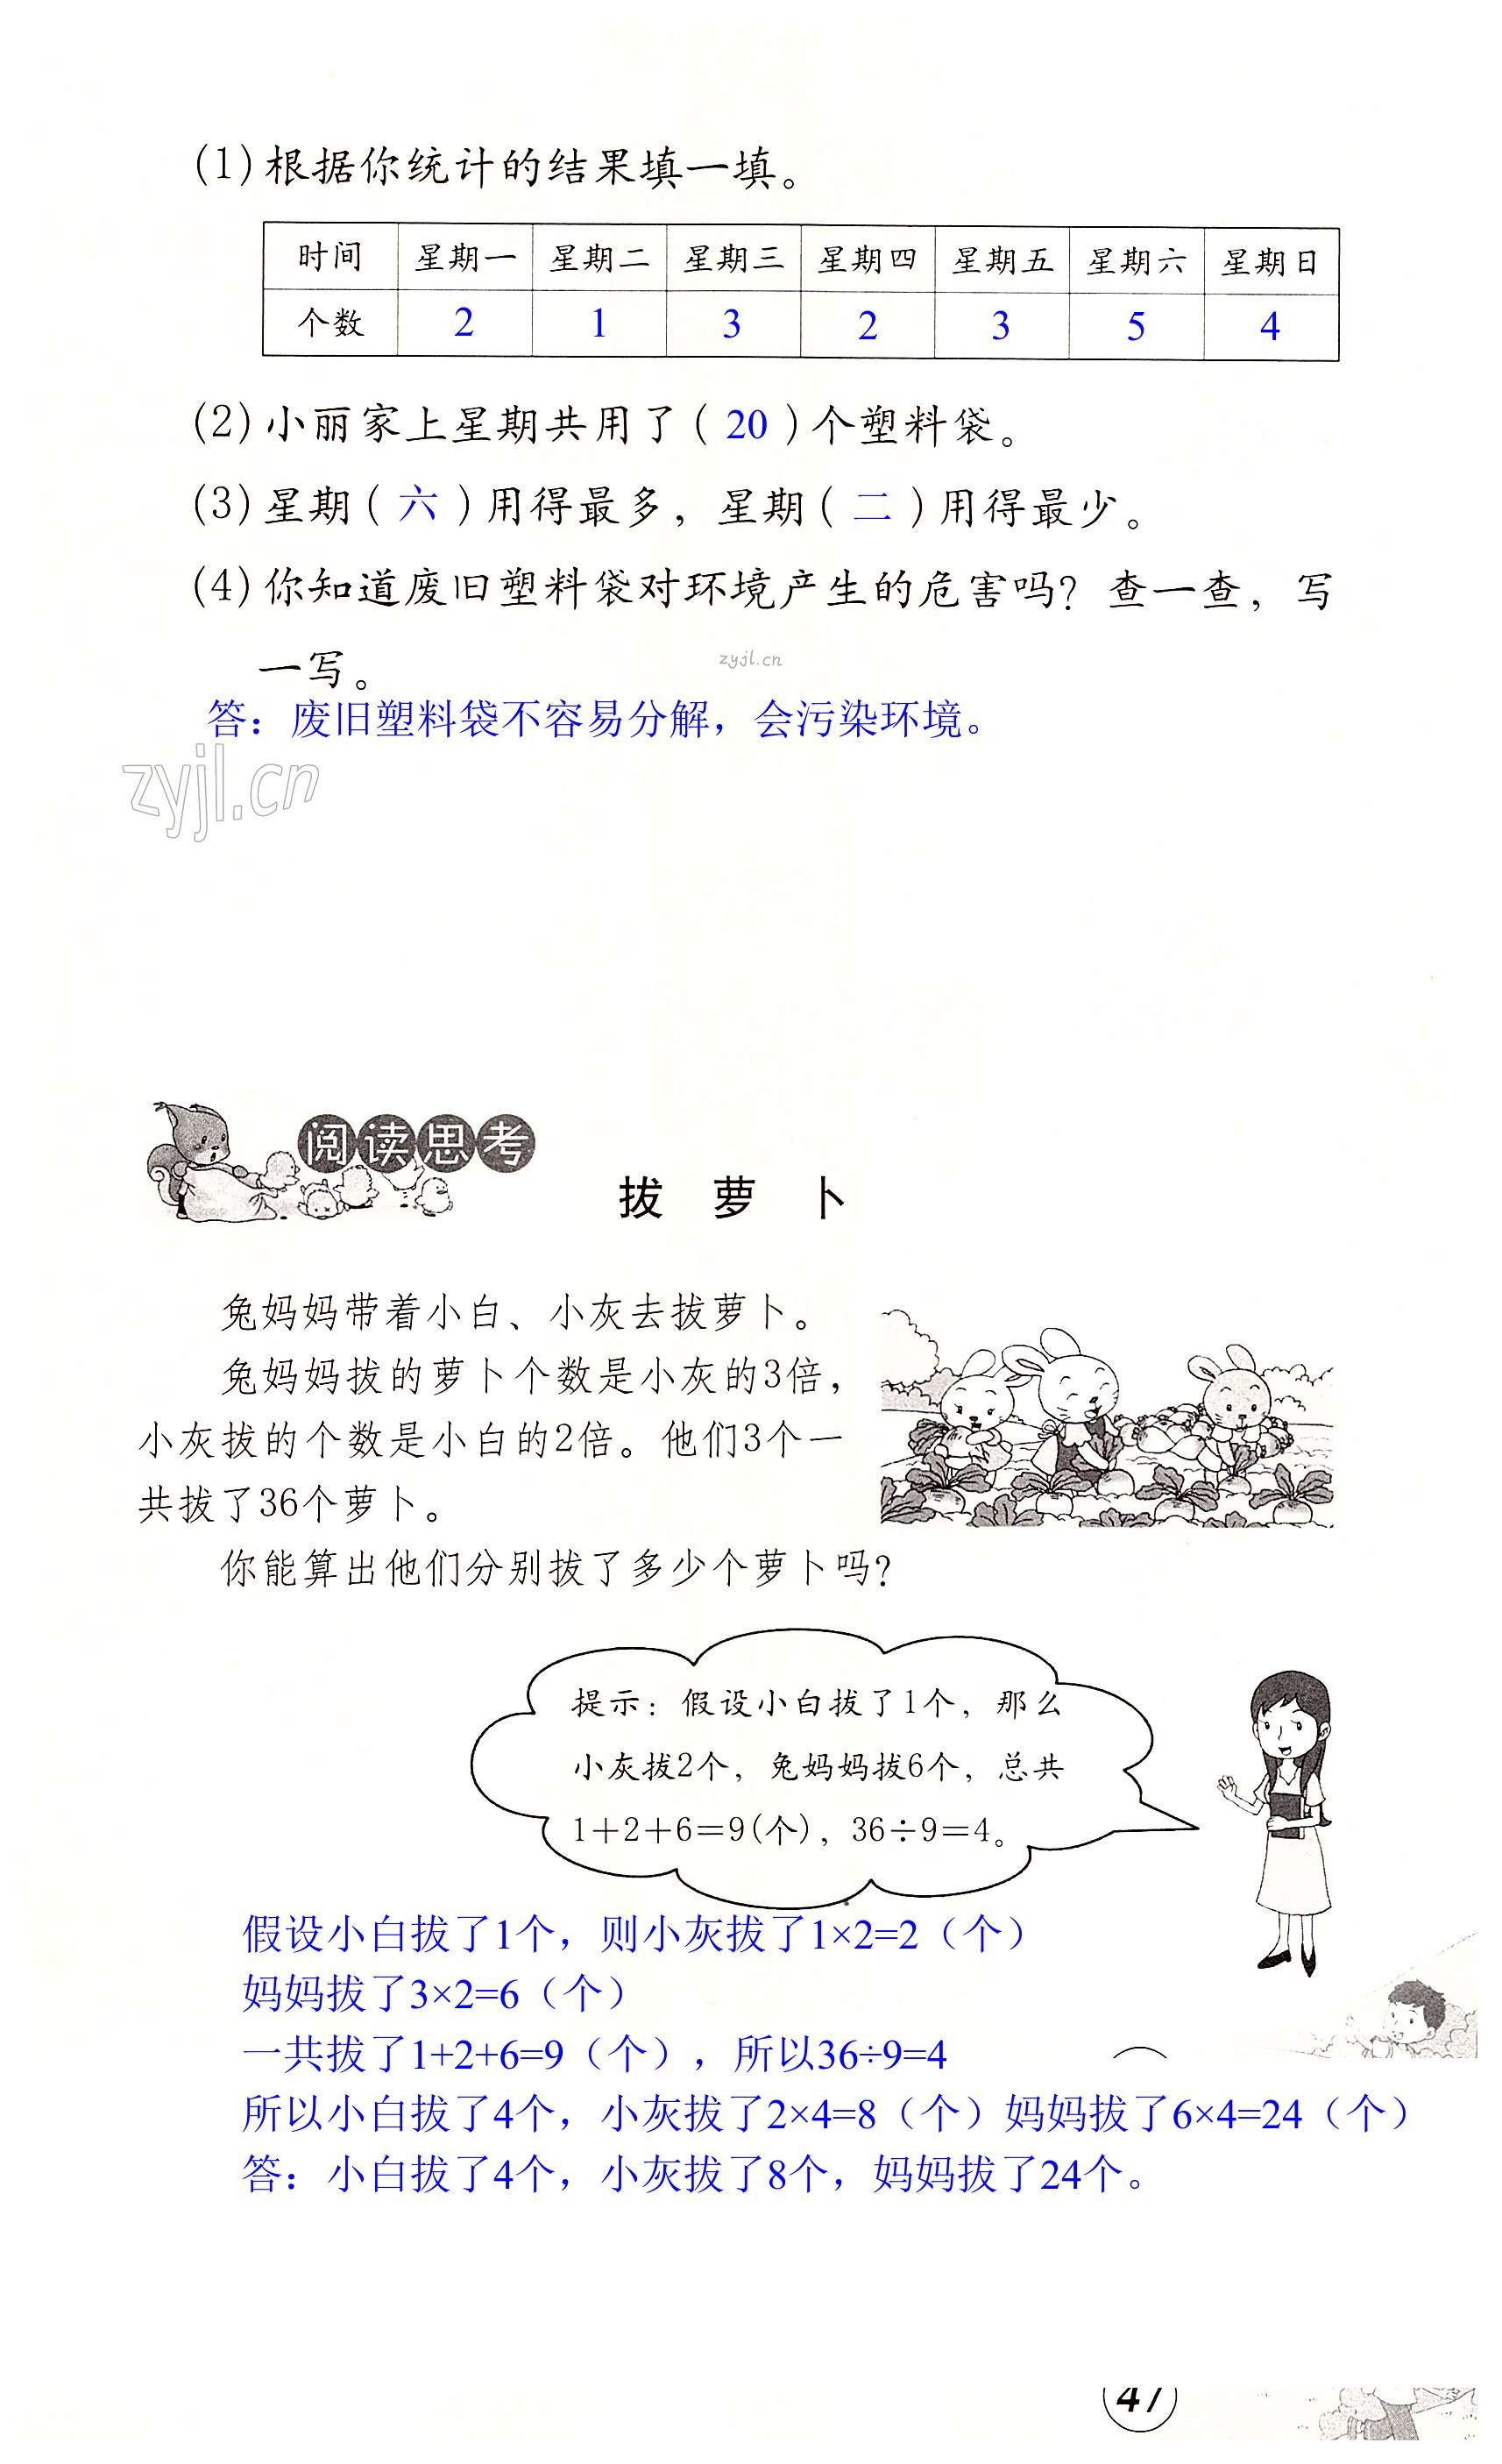 (1)根据你统计的结果填一填。
时间 星期一 星期二 星期三 星期四 星期五 星期六 星期日
个数 2 1 3 2 3 5 4
(2)小丽家上星期共用了(20)个塑料袋。
(3)星期(六)用得最多，星期(二)用得最少。
(4)你知道废旧塑料袋对环境产生的危害吗？查一查，写
一写。
zyjl.cn
答：废旧塑料袋不容易分解，会污染环境。
zyjl.cn
阅读思考
拔 萝 卜
兔妈妈带着小白、小灰去拔萝卜。
兔妈妈拔的萝卜个数是小灰的3倍，
小灰拔的个数是小白的2倍。他们3个一
共拔了36个萝卜。
你能算出他们分别拔了多少个萝卜吗？
提示：假设小白拔了1个，那么
小灰拔2个，兔妈妈拔6个，总共
1+2+6=9(个)，36÷9=4。
假设小白拔了1个，则小灰拔了1×2=2（个）
妈妈拔了3×2=6（个）
一共拔了1+2+6=9（个），所以36÷9=4
所以小白拔了4个，小灰拔了2×4=8（个）妈妈拔了6×4=24（个）
答：小白拔了4个，小灰拔了8个，妈妈拔了24个。
47